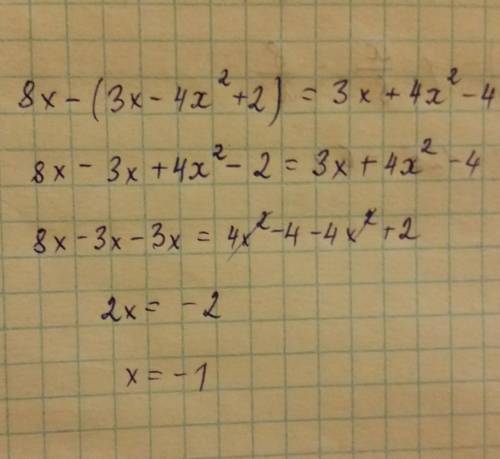 8x - (3x - 4x² + 2) = 3x + 4x² - 4
8x - 3x + 4x² - 2 = 3x + 4x² - 4
8x - 3x - 3x = 4x² - 4 - 4x² + 2
2x = - 2
x = - 1